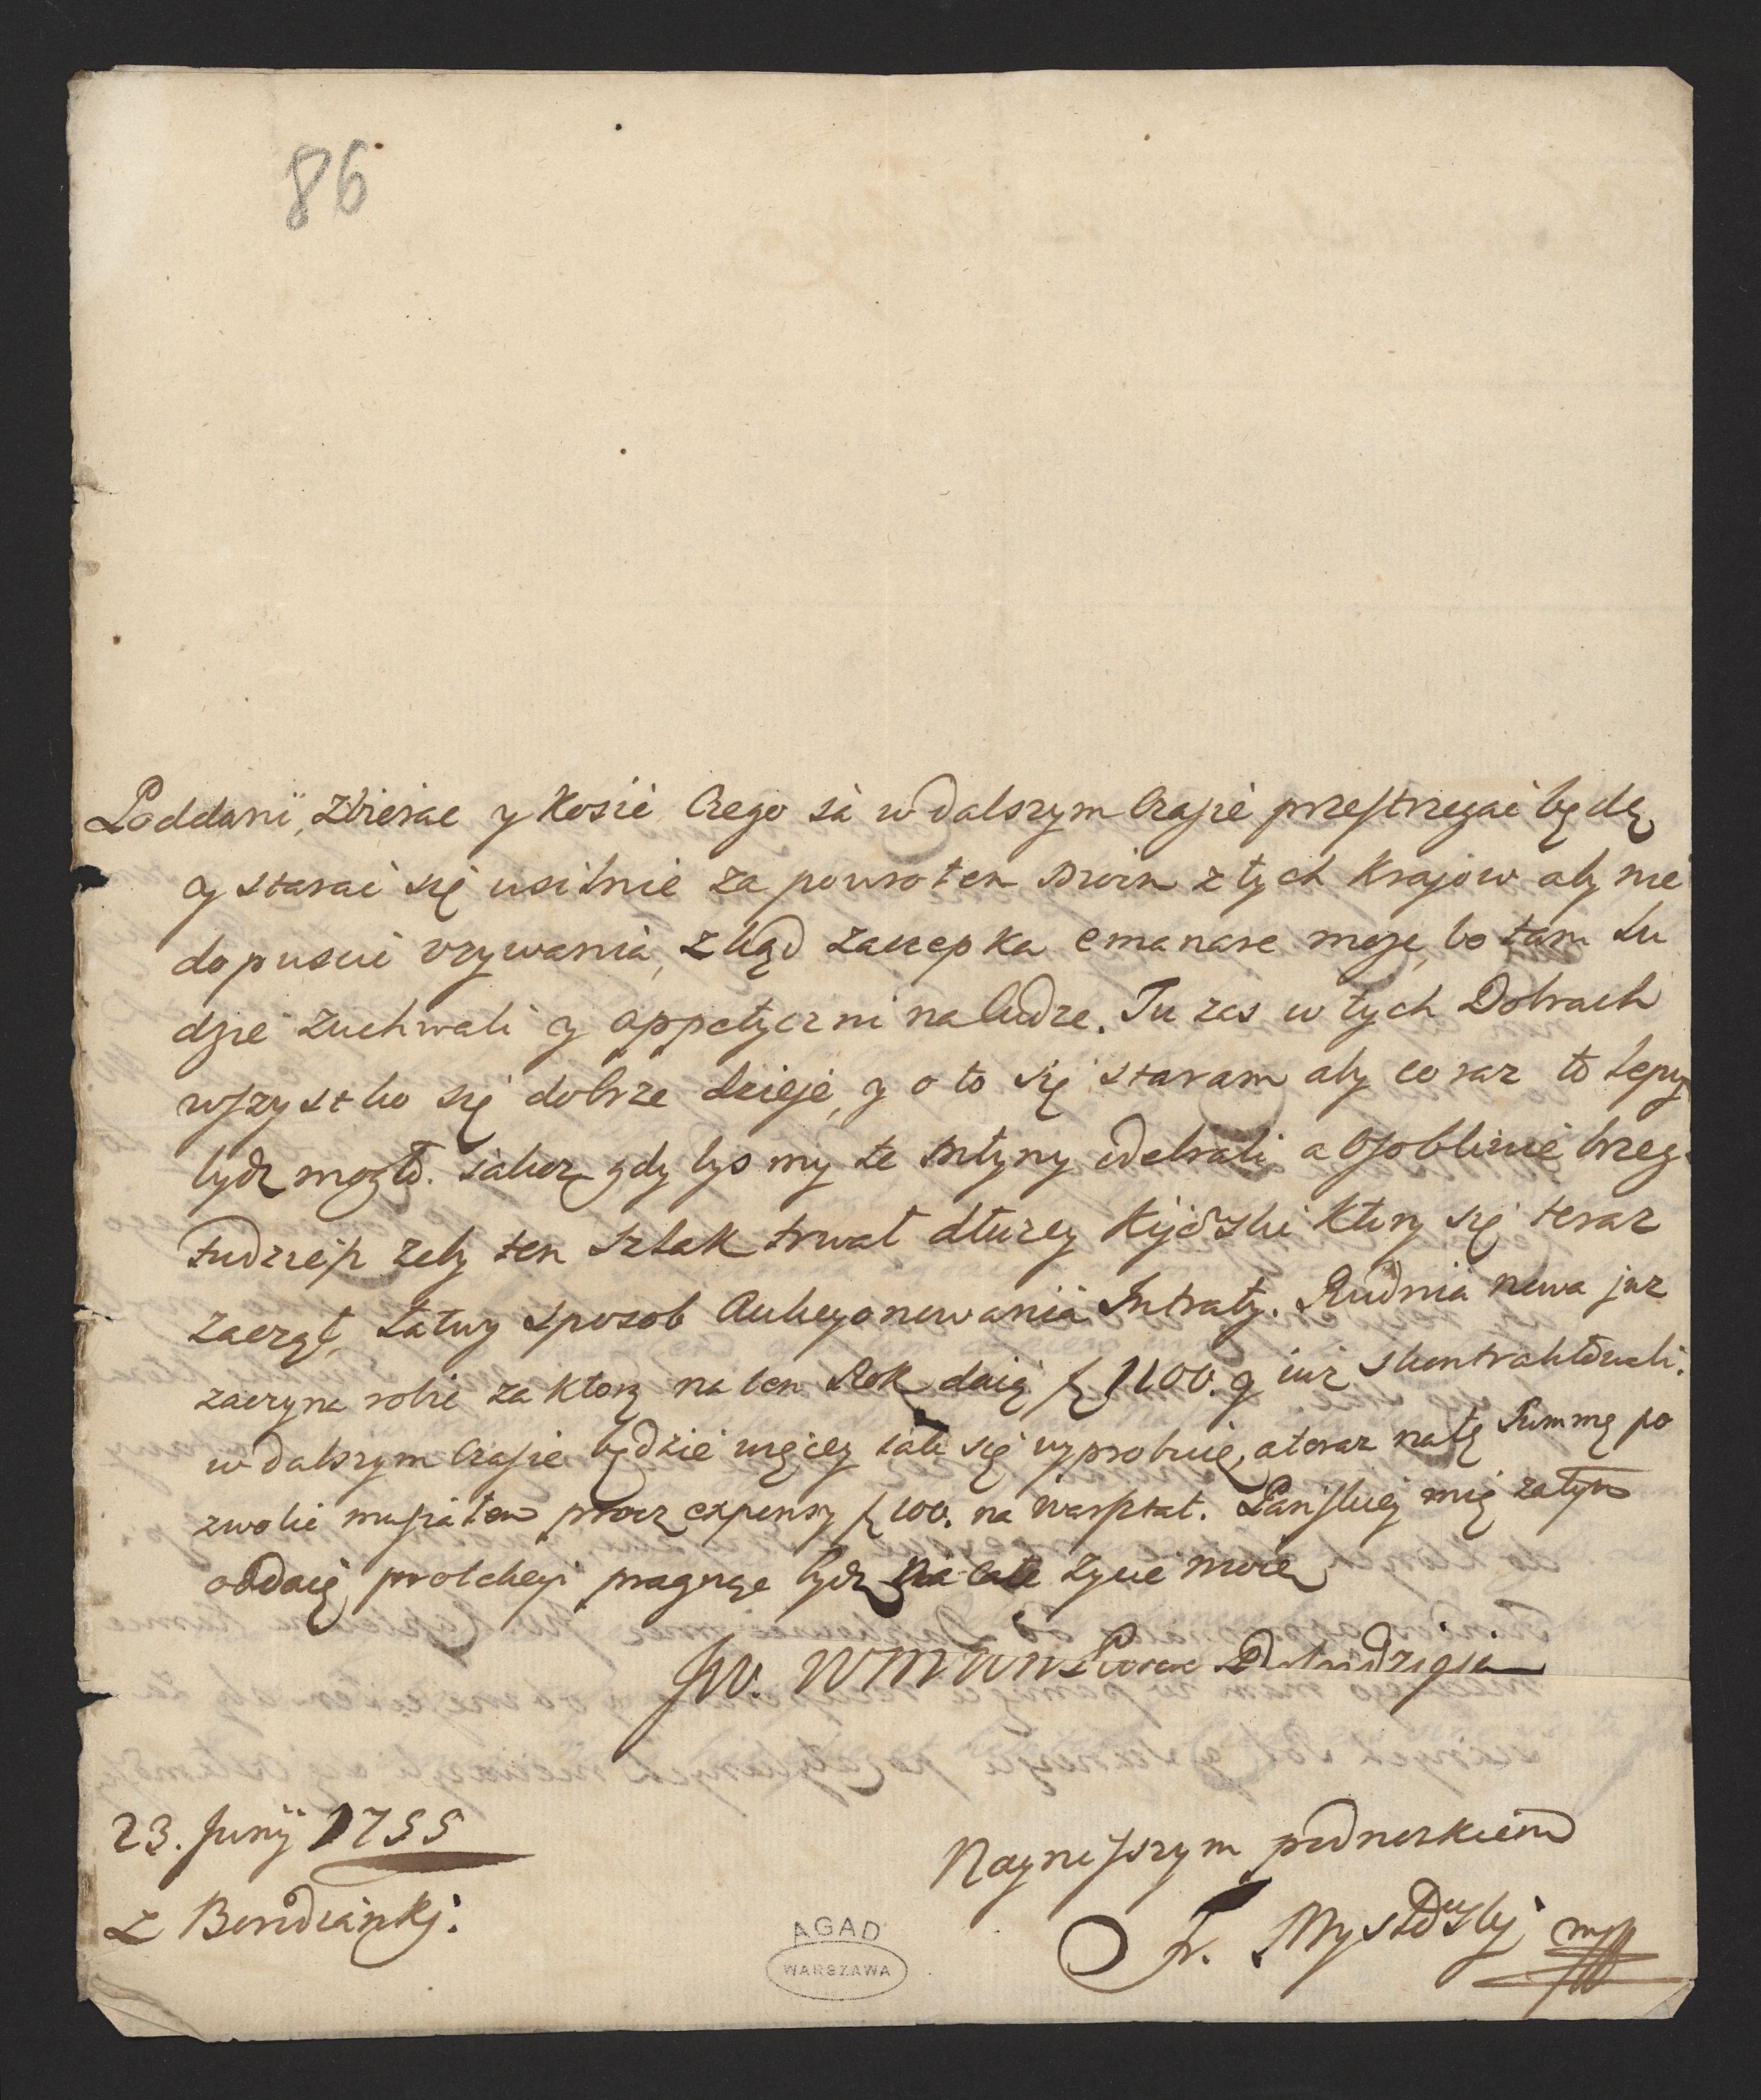 86
Poddani, zbierac y kosić czego ia w dalszym Czasie przestrzegać będę
y starać się usilnie za powrotem swoim z tych Krajow aby nie
dopuscić uzywania, zkąd zaczepka emanare moze, bo tam lu
dzie zuchwali y appetyczni na cudze. Tu zas w tych Dobrach
wszystko się dobrze dzieje, y o to się staram aby coraz to lepiy
bydz mogło. iakoz gdy bysmy te młyny odebrali a osobliwie brzeg.
tudziesz zeby ten szlak trwał dłuzey Kijowski ktury się teraz
zaczął, łatwy sposob Aukcyonowania Intraty. Rudnia nowa juz
zaczyna robić za ktorą na ten Rok daią f 1100. y iuz skontraktowali.
w dalszym Czasie będzie więcey iak się wyprobuie, a teraz na tę Summę po
zwolić musiałem procz expensy f 100. na warsztat. Pańskiey mię zatym
oddaię protekcyi pragnąc bydz na całe zycie moie
JW. WM Pana Dobrodzieja
23. Junij 1755
z Berdianki.
Nayniszszym podnozkiem
Fr. Mysłowsky mp
AGAD
WARSZAWA